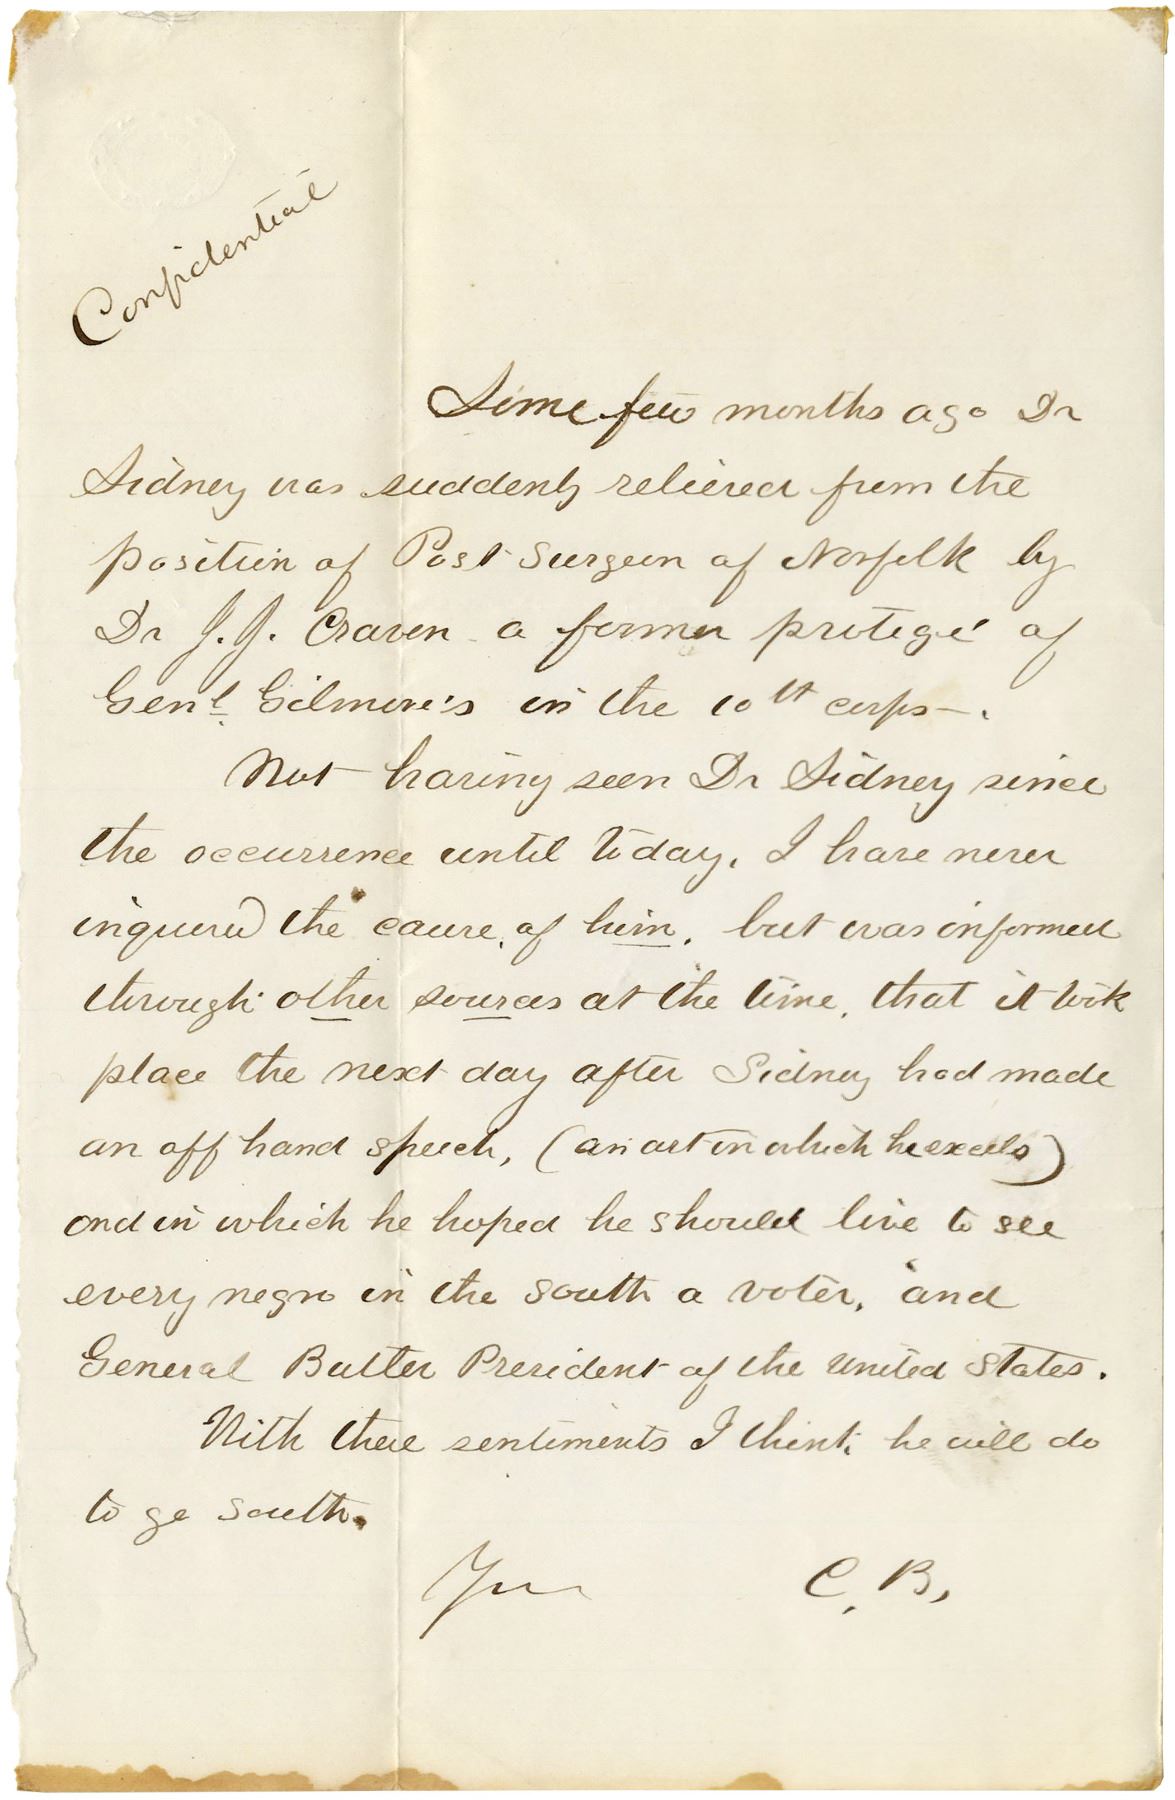 Confidential
Some few months ago Dr
Sidney was suddenly relieved from the
position of Post Surgeon of Norfolk by
Dr J. J. Craven a former protegé of
Genl Gilmore's in the 10th corps—.
Not having seen Dr Sidney since
the occurrence until today, I have never
inquired the cause, of him, but was informed
through other sources at the time, that it took
place the next day after Sidney had made
an off hand speech, (an art in which he excels)
and in which he hoped he should live to see
every negro in the south a voter, and
General Butler President of the United States.
With these sentiments I think he will do
to go south.
C. B.